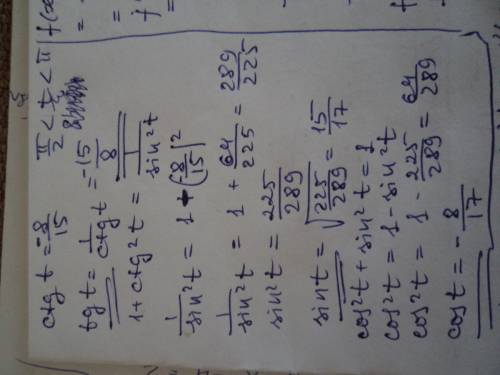 ctg t = -8/15   π/2 < t < π
tg t = 1/ctg t = -15/8
1 + ctg² t = 1/sin² t
1/sin² t = 1 + (8/15)²
1/sin² t = 1 + 64/225 = 289/225
sin² t = 225/289
sin t = √225/289 = 15/17
cos² t + sin² t = 1
cos² t = 1 - sin² t
cos² t = 1 - 225/289 = 64/289
cos t = -8/17